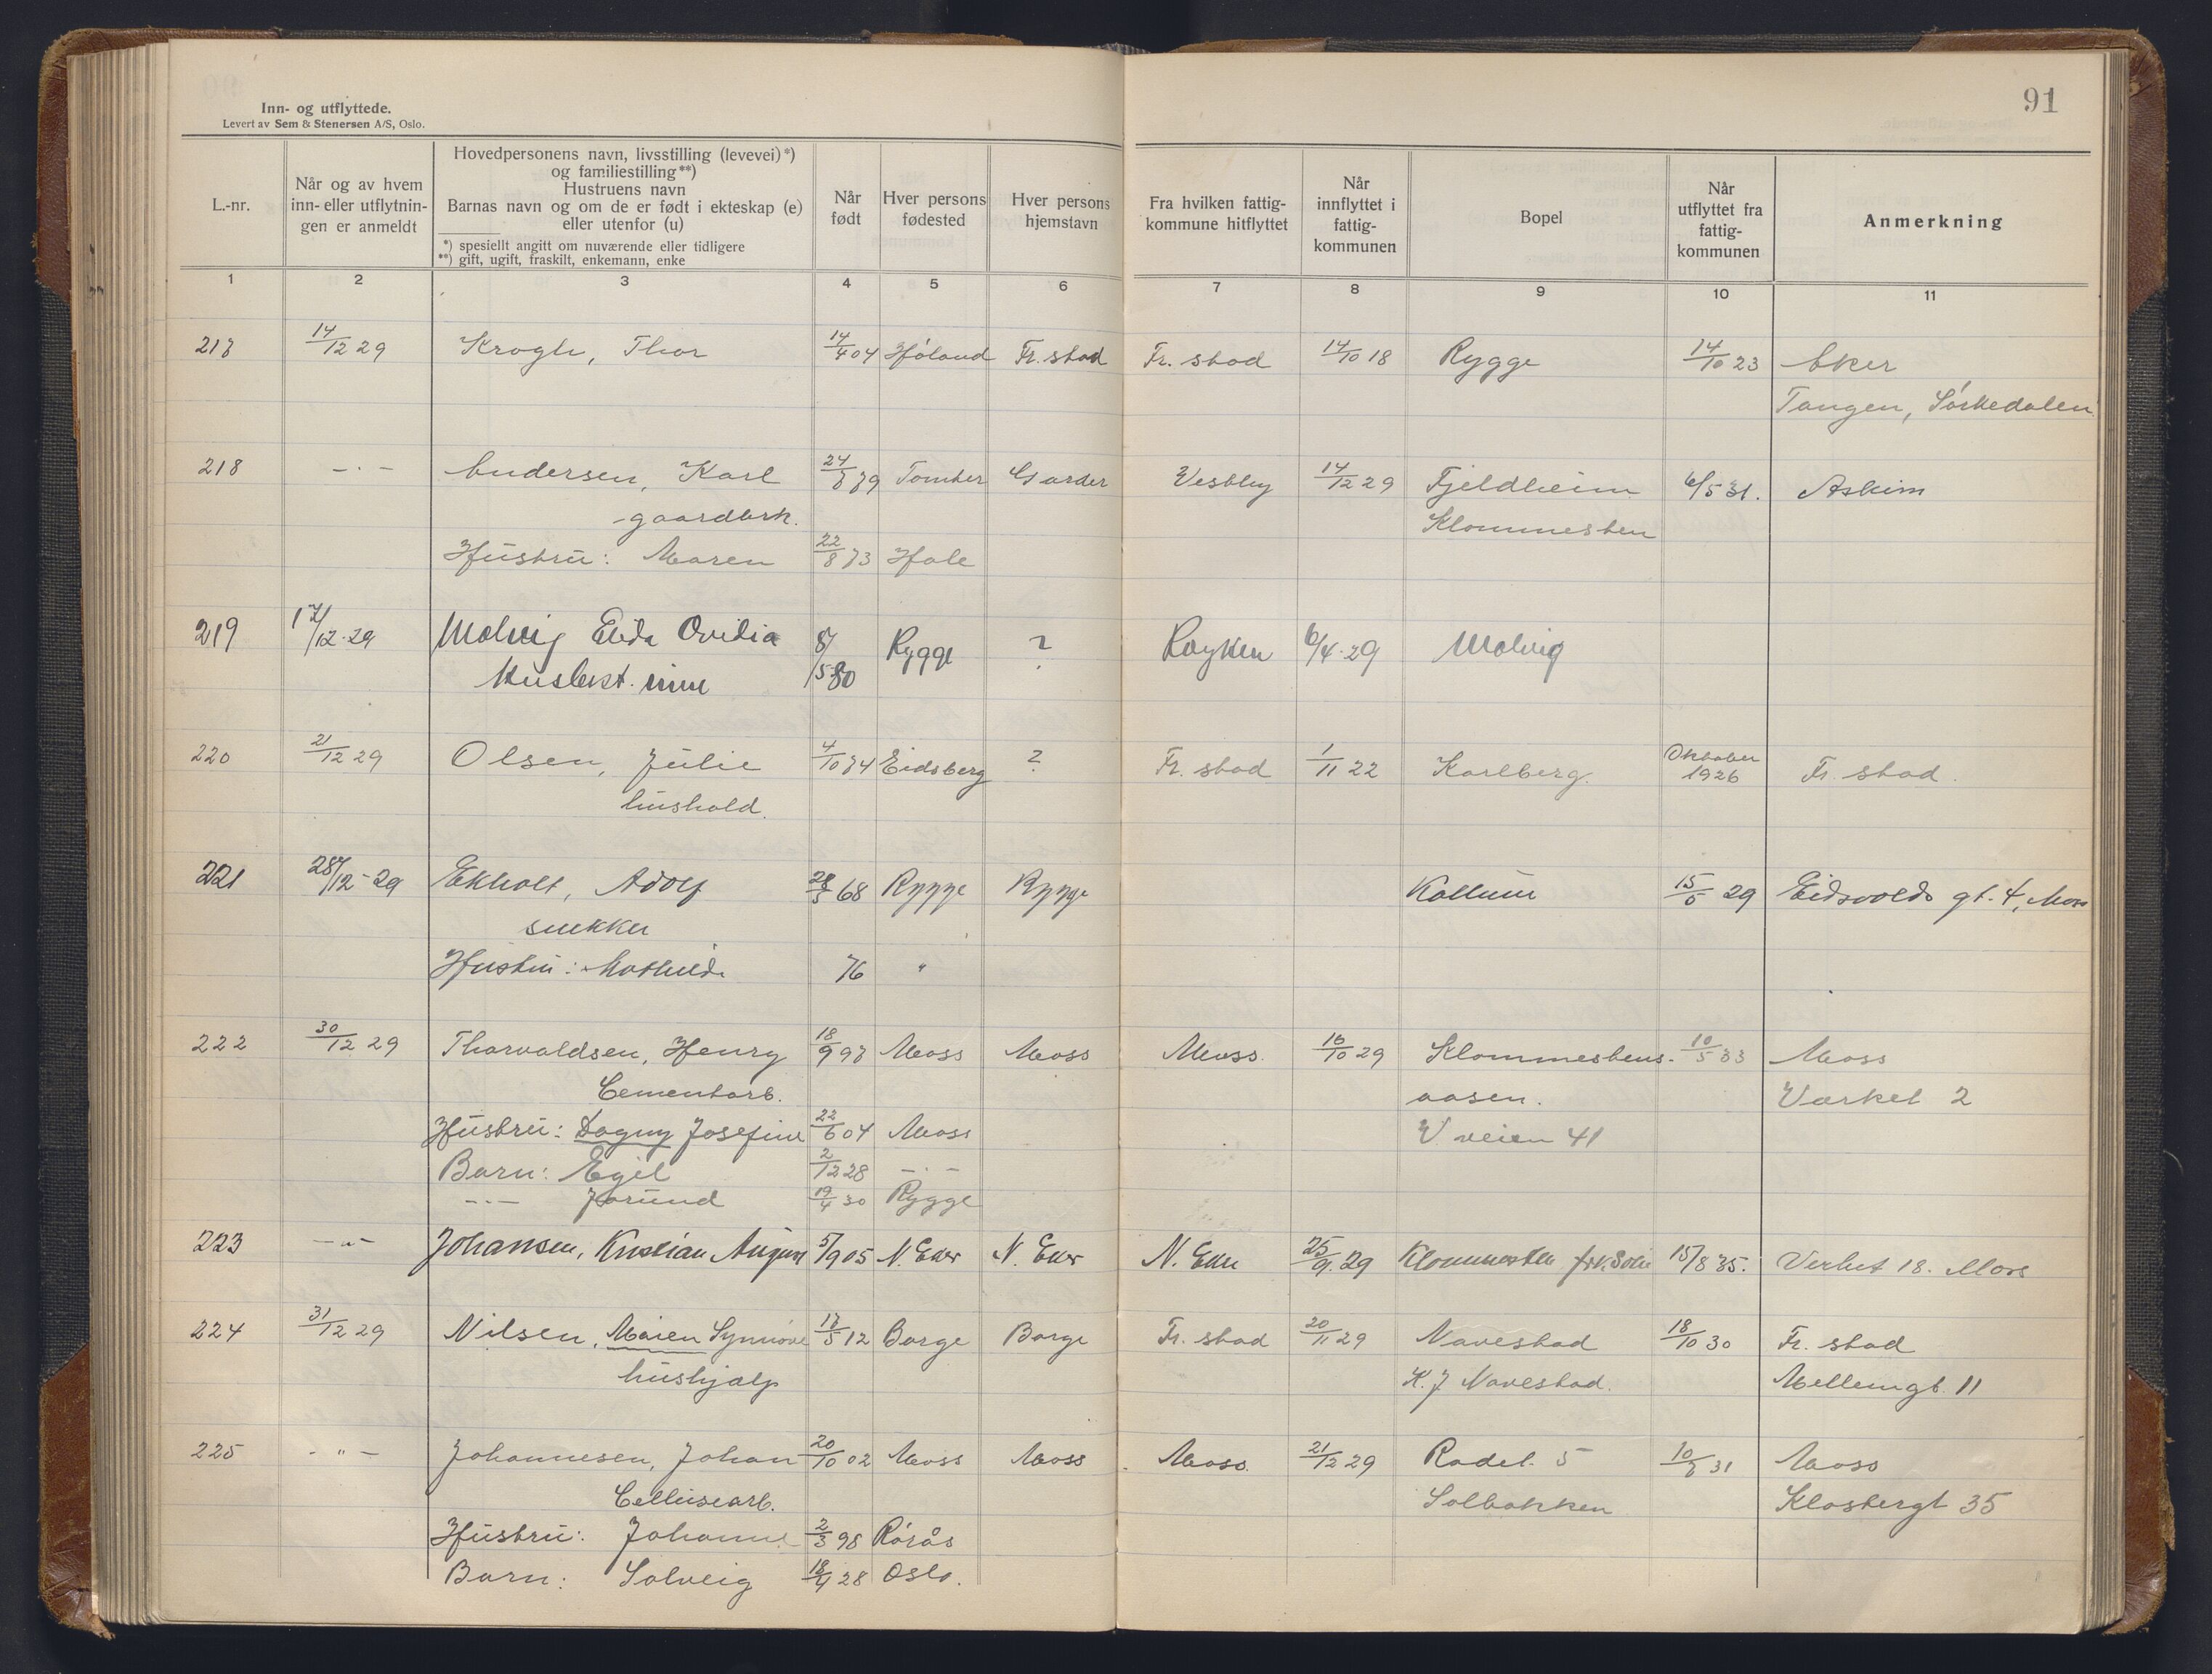 91
Inn- og utflyttede.
Levert av Sem & Stenersen A/S, Oslo.
L.-nr.
Når og av hvem inn- eller utflytnin- gen er anmeldt
Hovedpersonens navn, livsstilling (levevei)*)
og familiestilling**)
Hustruens navn
Barnas navn og om de er født i ekteskap (e)
eller utenfor (u)
*) spesiellt angitt om nuværende eller tidligere
**) gift, ugift, fraskilt, enkemann, enke
Når født
Hver persons fødested
Hver persons hjemstavn
Fra hvilken fattig- kommune hitflyttet
Når innflyttet i fattig- kommunen
Bopel
Når utflyttet fra fattig- kommunen
Anmerkning
1 2 3 4 5 6 7 8 9 10 11
217 14/12 29 Krogh, Thor 14/4 04 Høland Fr. stad Fr. stad 14/10 18 Rygge 14/10 23 Aker
Tangen, Sørkedalen
218 -·- Andersen, Karl 24/7 79 Tomter Garder Vestby 14/12 29 Fjeldheim 6/5 31. Askim
gaardbrk. Klommesten
Hustru: Maren 22/8 73 Hole
219 17/12-29 Molvig Elida Ovidia 8/5 80 Rygge ? Røyken 6/4-29 Molvig
220 21/12 29 Olsen, Julie 4/10 74 Eidsberg ? Fr. stad 1/11 22 Karlberg. Oktober 1926 Fr. stad.
hushold.
221 28/12-29 Ekholt, Adolf 28/3 68 Rygge Rygge Kallum 15/5 29 Eidsvolds gt. 4, Moss
snekker
Hustru: Mathilde 76 "
222 30/12 29 Thorvaldsen, Henry 18/9 97 Moss Moss Moss. 16/10 29 Klommestens- 10/5 33 Moss
Cementarb. aasen. Værket 2
Hustru: Dagny Josefine 22/6 04 Moss V veien 41
Barn: Egil 2/12 28 -·-
-·- Jorund 19/4 30 Rygge
223 -"- Johansen, Kristian August 5/9 05 N. Eker N. Eker N. Eker 25/9. 29 Klommesten 15/8 35. Verket 18. Moss
224 31/12 29 Nilsen, Maren Synnøve 17/5 12 Borge Borge Fr. stad 20/11 29 Navestad 18/10 30 Fr. stad
hushjælp K. J Navestad. Mellemgt. 11
225 -"- Johannesen, Johan 20/10 02 Moss Moss Moss. 21/12 29 Radel. 5 10/7 31 Moss
Cellusearb. Solbakken Klostergt 35
Hustru: Johanne 2/3 98 Rørås
Barn: Solveig 18/4 28 Oslo.